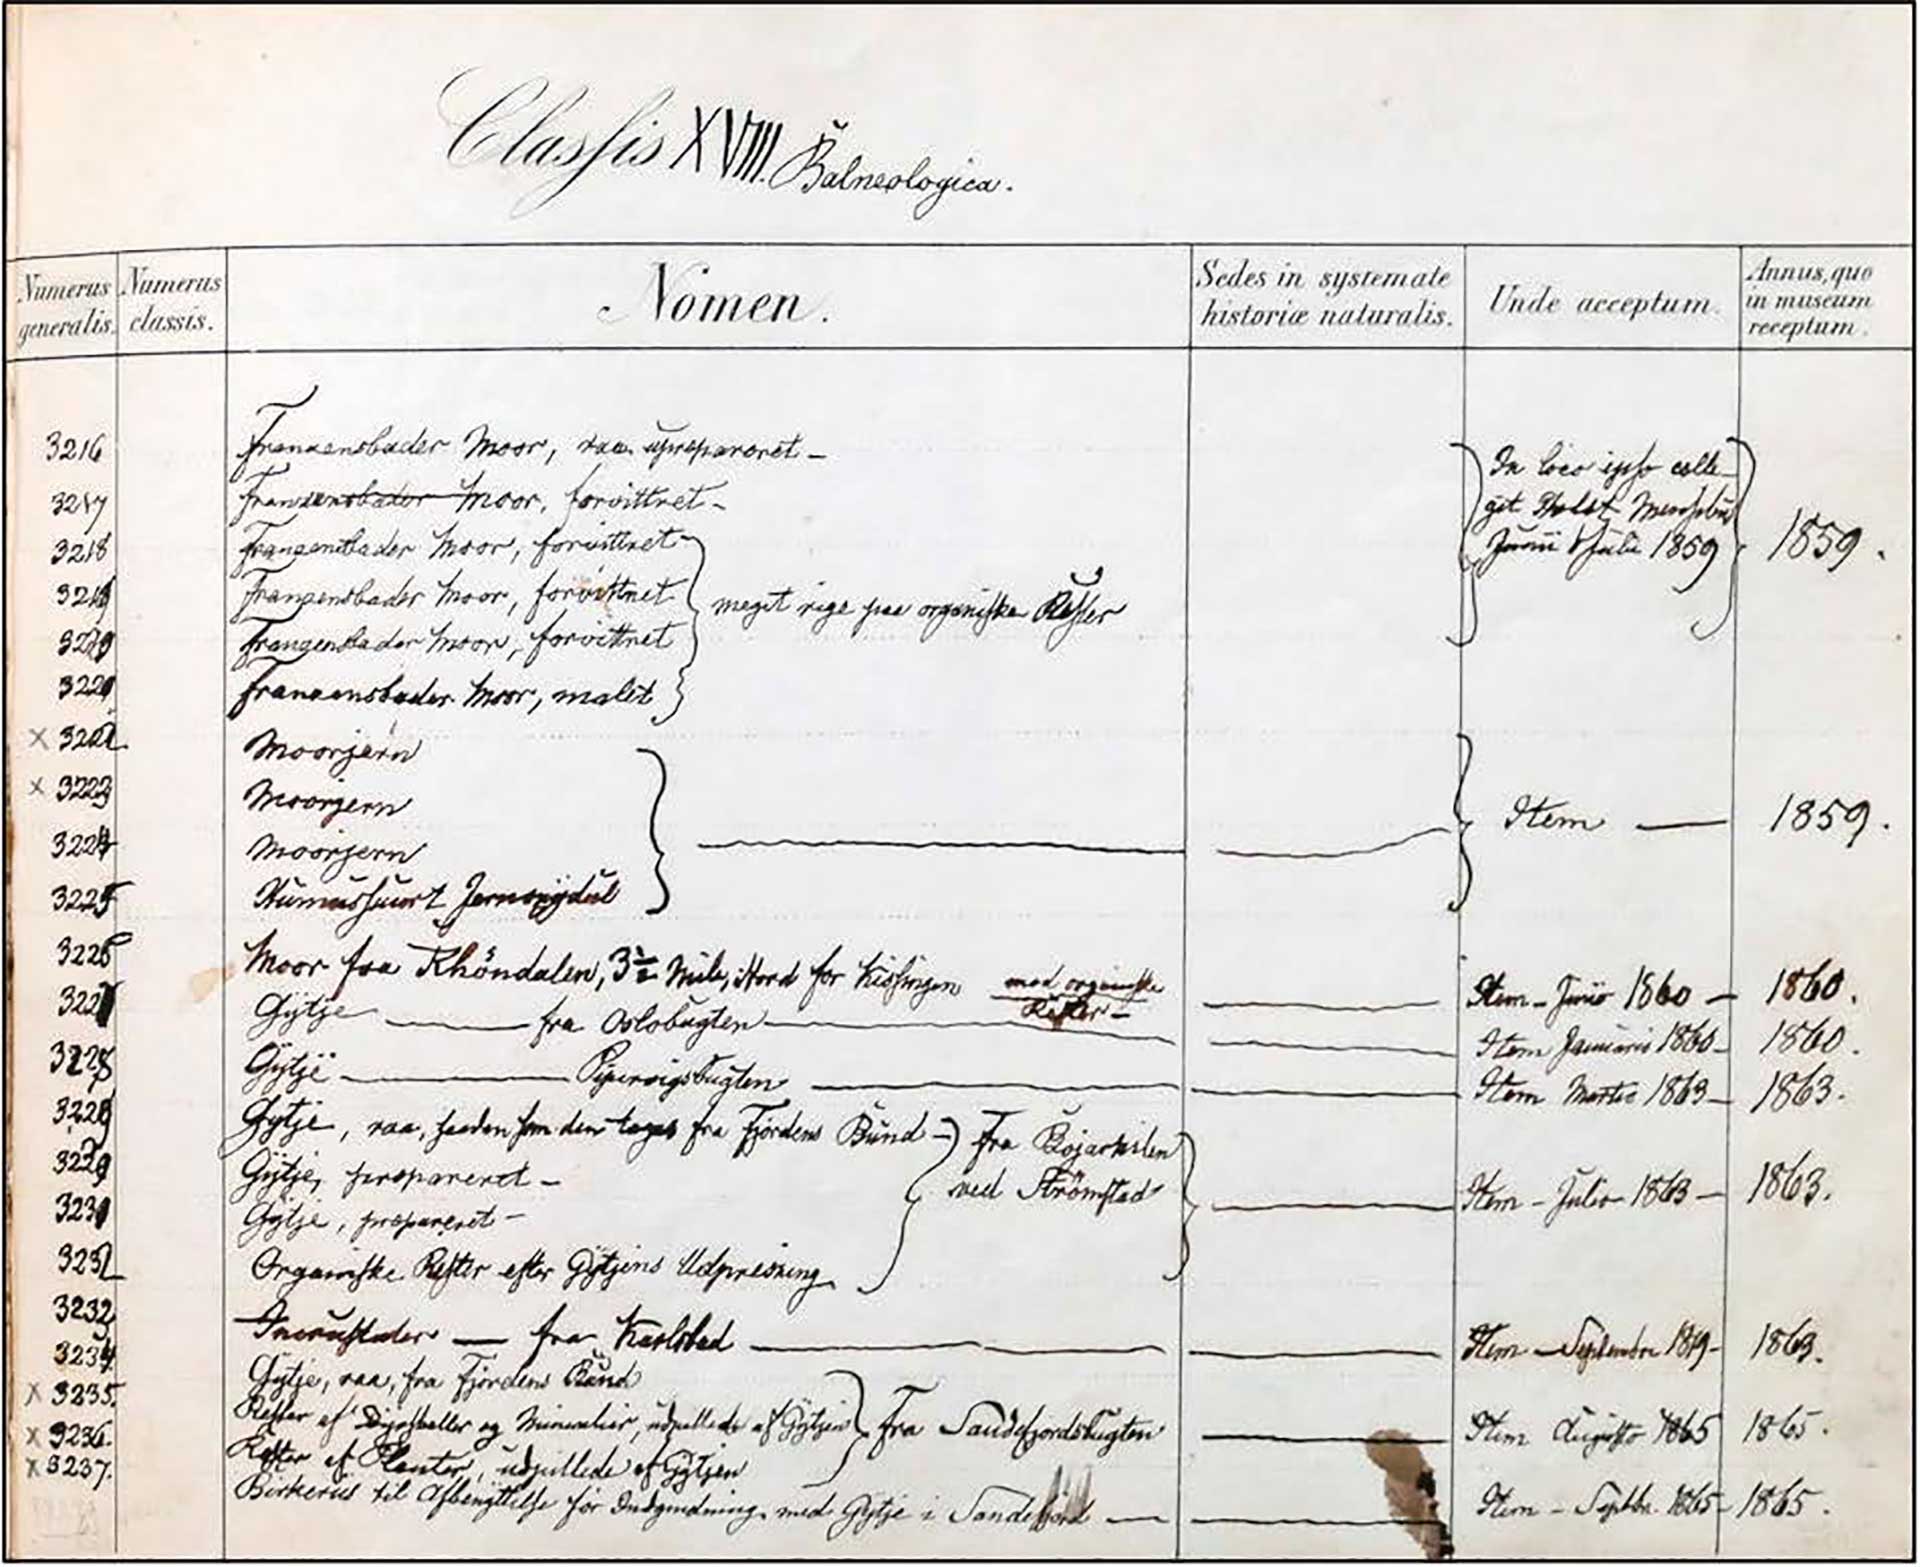 Classis XVIII. Balneologica.
Numerus generalis. Numerus classis. Nomen. Sedes in systemate historiæ naturalis. Unde acceptum. Annus, quo in museum receptum.
3216 Franzensbader Moor, raa upræpareret –
In loco ipso colle-
3217 Franzensbader Moor, forvittret –
git Holst
3218 Franzensbader Moor, forvittret –
Junii & Julii 1859 1859.
3219 Franzensbader Moor, forvittret
meget rige paa organiske Rester
3220 Franzensbader Moor, forvittret
3221 Franzensbader Moor, malet
x 3222 Moorjern
x 3223 Moorjern
Item — 1859.
3224 Moorjern
3225 Humussuurt Jernoxydul
3226 Moor fra Rhöndalen, 3½ Mile, Nord for Kissingen med organiske Rester – Item – Junio 1860 – 1860.
3227 Gÿtje — fra Oslobugten — Item Januario 1860 – 1860.
3228 Gÿtje — Pipervigsbugten — Item Martio 1863 – 1863.
3228 Gytje, raa, saadan som den tages fra Fjordens Bund –
fra
3229 Gÿtje, præpareret –
ved Strömstad
Item – Julio 1863 – 1863.
3230 Gÿtje, præpareret –
3231 Organiske Rester efter Gÿtjens Udpresning
3232 Incrustater — fra Karlsbad — Item – Septembri 1863.
3234 Gÿtje, raa, fra Fjordens Bund
x 3235. Rester af og Mineralier, udpillede af Gÿtjen
Fra Sandefjordsbugten — Item Augusto 1865 1865.
x 3236. Rester af Planter, udpillede af Gÿtjen
x 3237. Birkeriis til Afbenÿttelse for Indgnidning med Gÿtje i Sandefjord — Item – Septbr. 1865 – 1865.